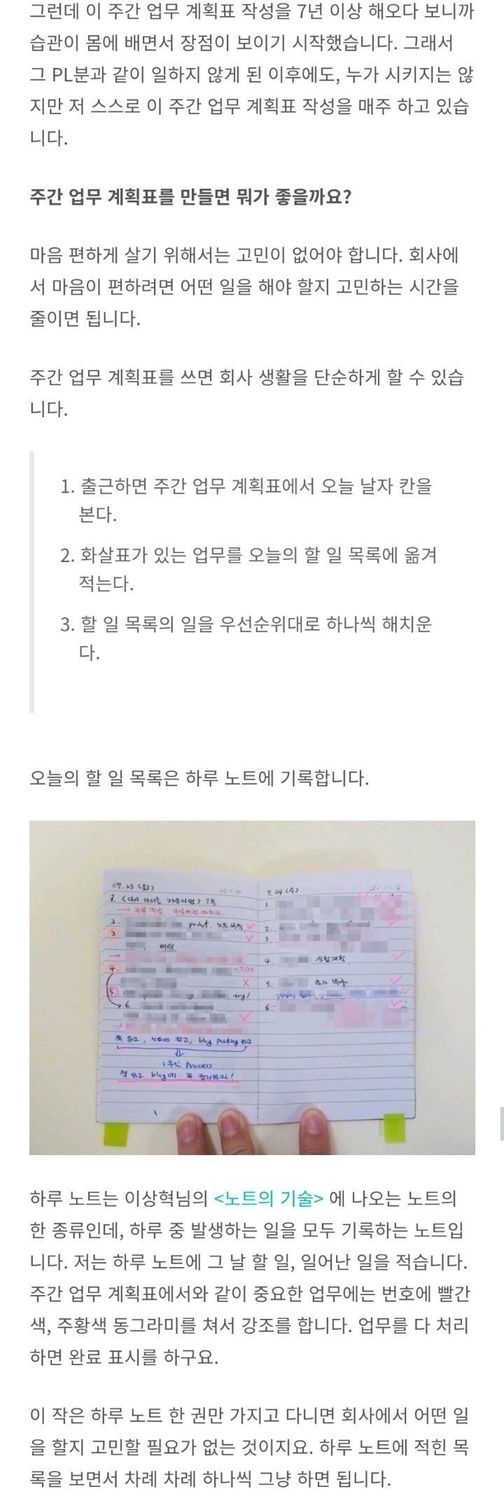 그런데 이 주간 업무 계획표 작성을 7년 이상 해오다 보니까
습관이 몸에 배면서 장점이 보이기 시작했습니다. 그래서
그 PL분과 같이 일하지 않게 된 이후에도, 누가 시키지는 않
지만 저 스스로 이 주간 업무 계획표 작성을 매주 하고 있습
니다.
주간 업무 계획표를 만들면 뭐가 좋을까요?
마음 편하게 살기 위해서는 고민이 없어야 합니다. 회사에
서 마음이 편하려면 어떤 일을 해야 할지 고민하는 시간을
줄이면 됩니다.
주간 업무 계획표를 쓰면 회사 생활을 단순하게 할 수 있습
니다.
1. 출근하면 주간 업무 계획표에서 오늘 날자 칸을
본다.
2. 화살표가 있는 업무를 오늘의 할 일 목록에 옮겨
적는다.
3. 할 일 목록의 일을 우선순위대로 하나씩 해치운
다.
오늘의 할 일 목록은 하루 노트에 기록합니다.
7. 23 (화)
7. 24 (수)
1.
2.
2.
3
3
4
4
5
5.
6.
6
하루 노트는 이상혁님의 <노트의 기술> 에 나오는 노트의
한 종류인데, 하루 중 발생하는 일을 모두 기록하는 노트입
니다. 저는 하루 노트에 그 날 할 일, 일어난 일을 적습니다.
주간 업무 계획표에서와 같이 중요한 업무에는 번호에 빨간
색, 주황색 동그라미를 쳐서 강조를 합니다. 업무를 다 처리
하면 완료 표시를 하구요.
이 작은 하루 노트 한 권만 가지고 다니면 회사에서 어떤 일
을 할지 고민할 필요가 없는 것이지요. 하루 노트에 적힌 목
록을 보면서 차례 차례 하나씩 그냥 하면 됩니다.